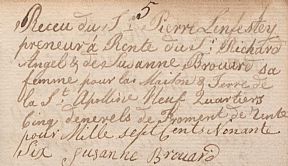 5
Receu du Sr. Pierre Lenfestey
preneur a Rente du Sr. Richard
Angel & de Susanne Brouard sa
femme pour la Maison & Terre de
la St. Apoline Neuf Quartiers
Cinq denerels de froment de rente
pour Mille Sept Cents Nonante
Six Susanne Brouard